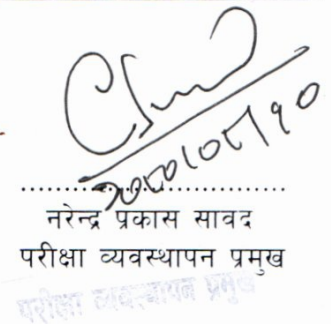 २०८०/०८/१०
नरेन्द्र प्रकास सावद
परीक्षा व्यवस्थापन प्रमुख
परीक्षा व्यवस्थापन प्रमुख